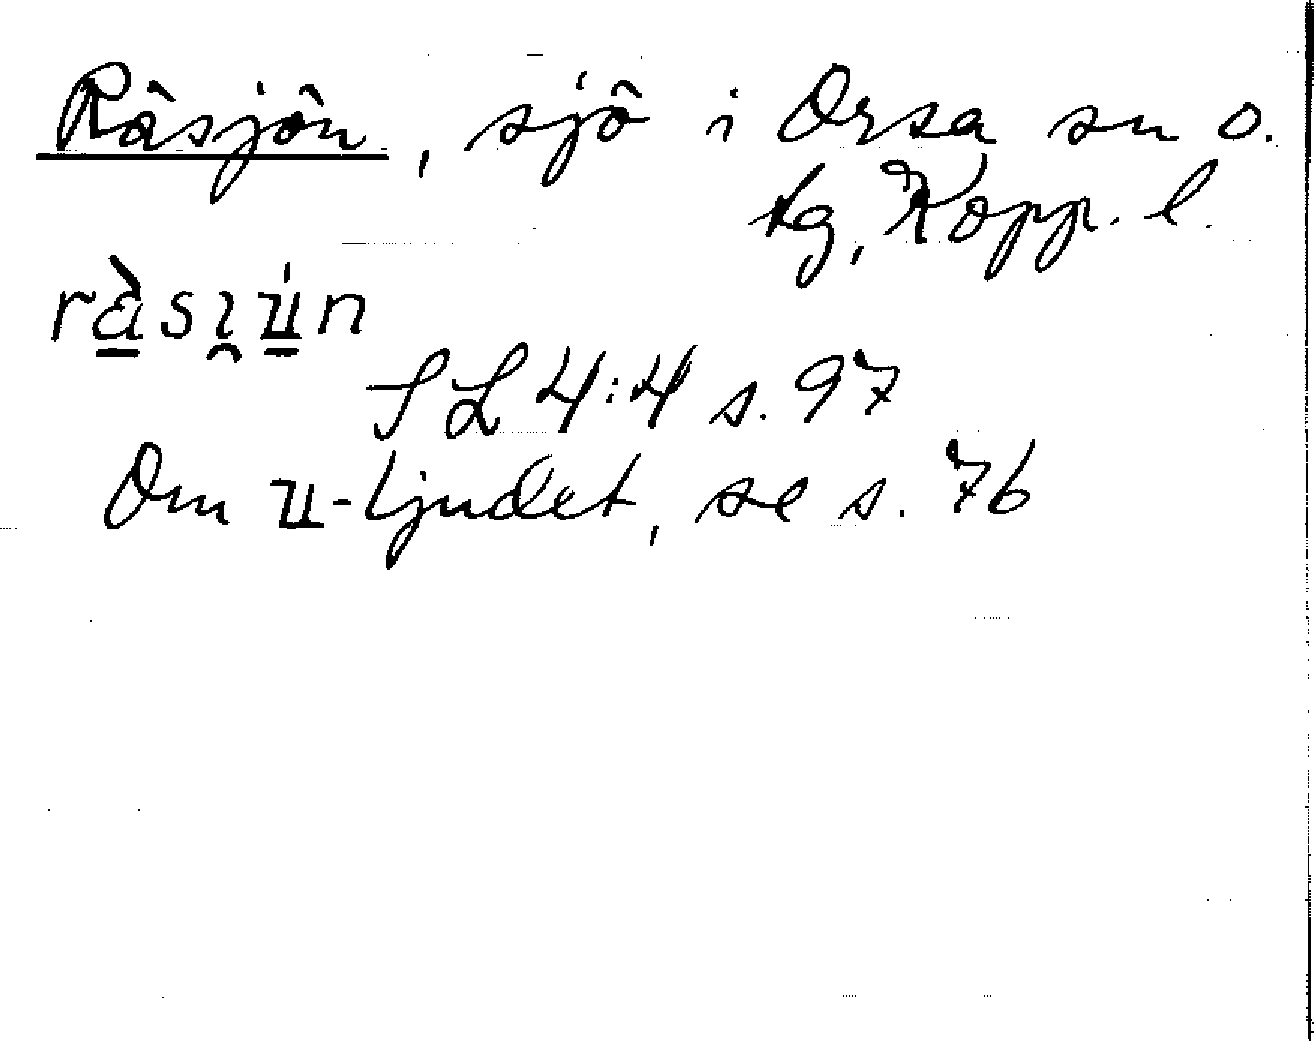 Räsjön, sjö i Orsa sn o.
tg, Kopp. l.
rà̱sı̯u̱̍n
SL 4:4 s. 97
Om u-ljudet, se s. 76